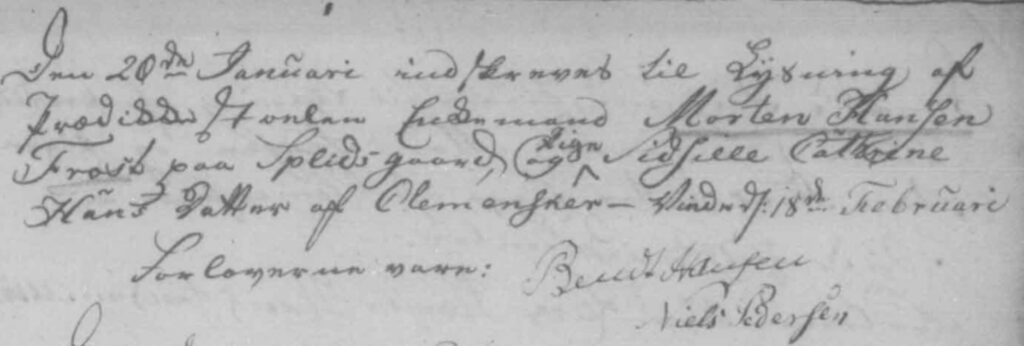 Den 20de Januari indskreves til Lysning af
Prædikke Stoelen Enkemand Morten Hansen
Frost paa Splidsgaard, og Pige Sidsille Cathrine
Hans Datter af Clemensker – Viede d. 18de Februari
Forloverne vare: Bendt Hansen
Niels Pedersen